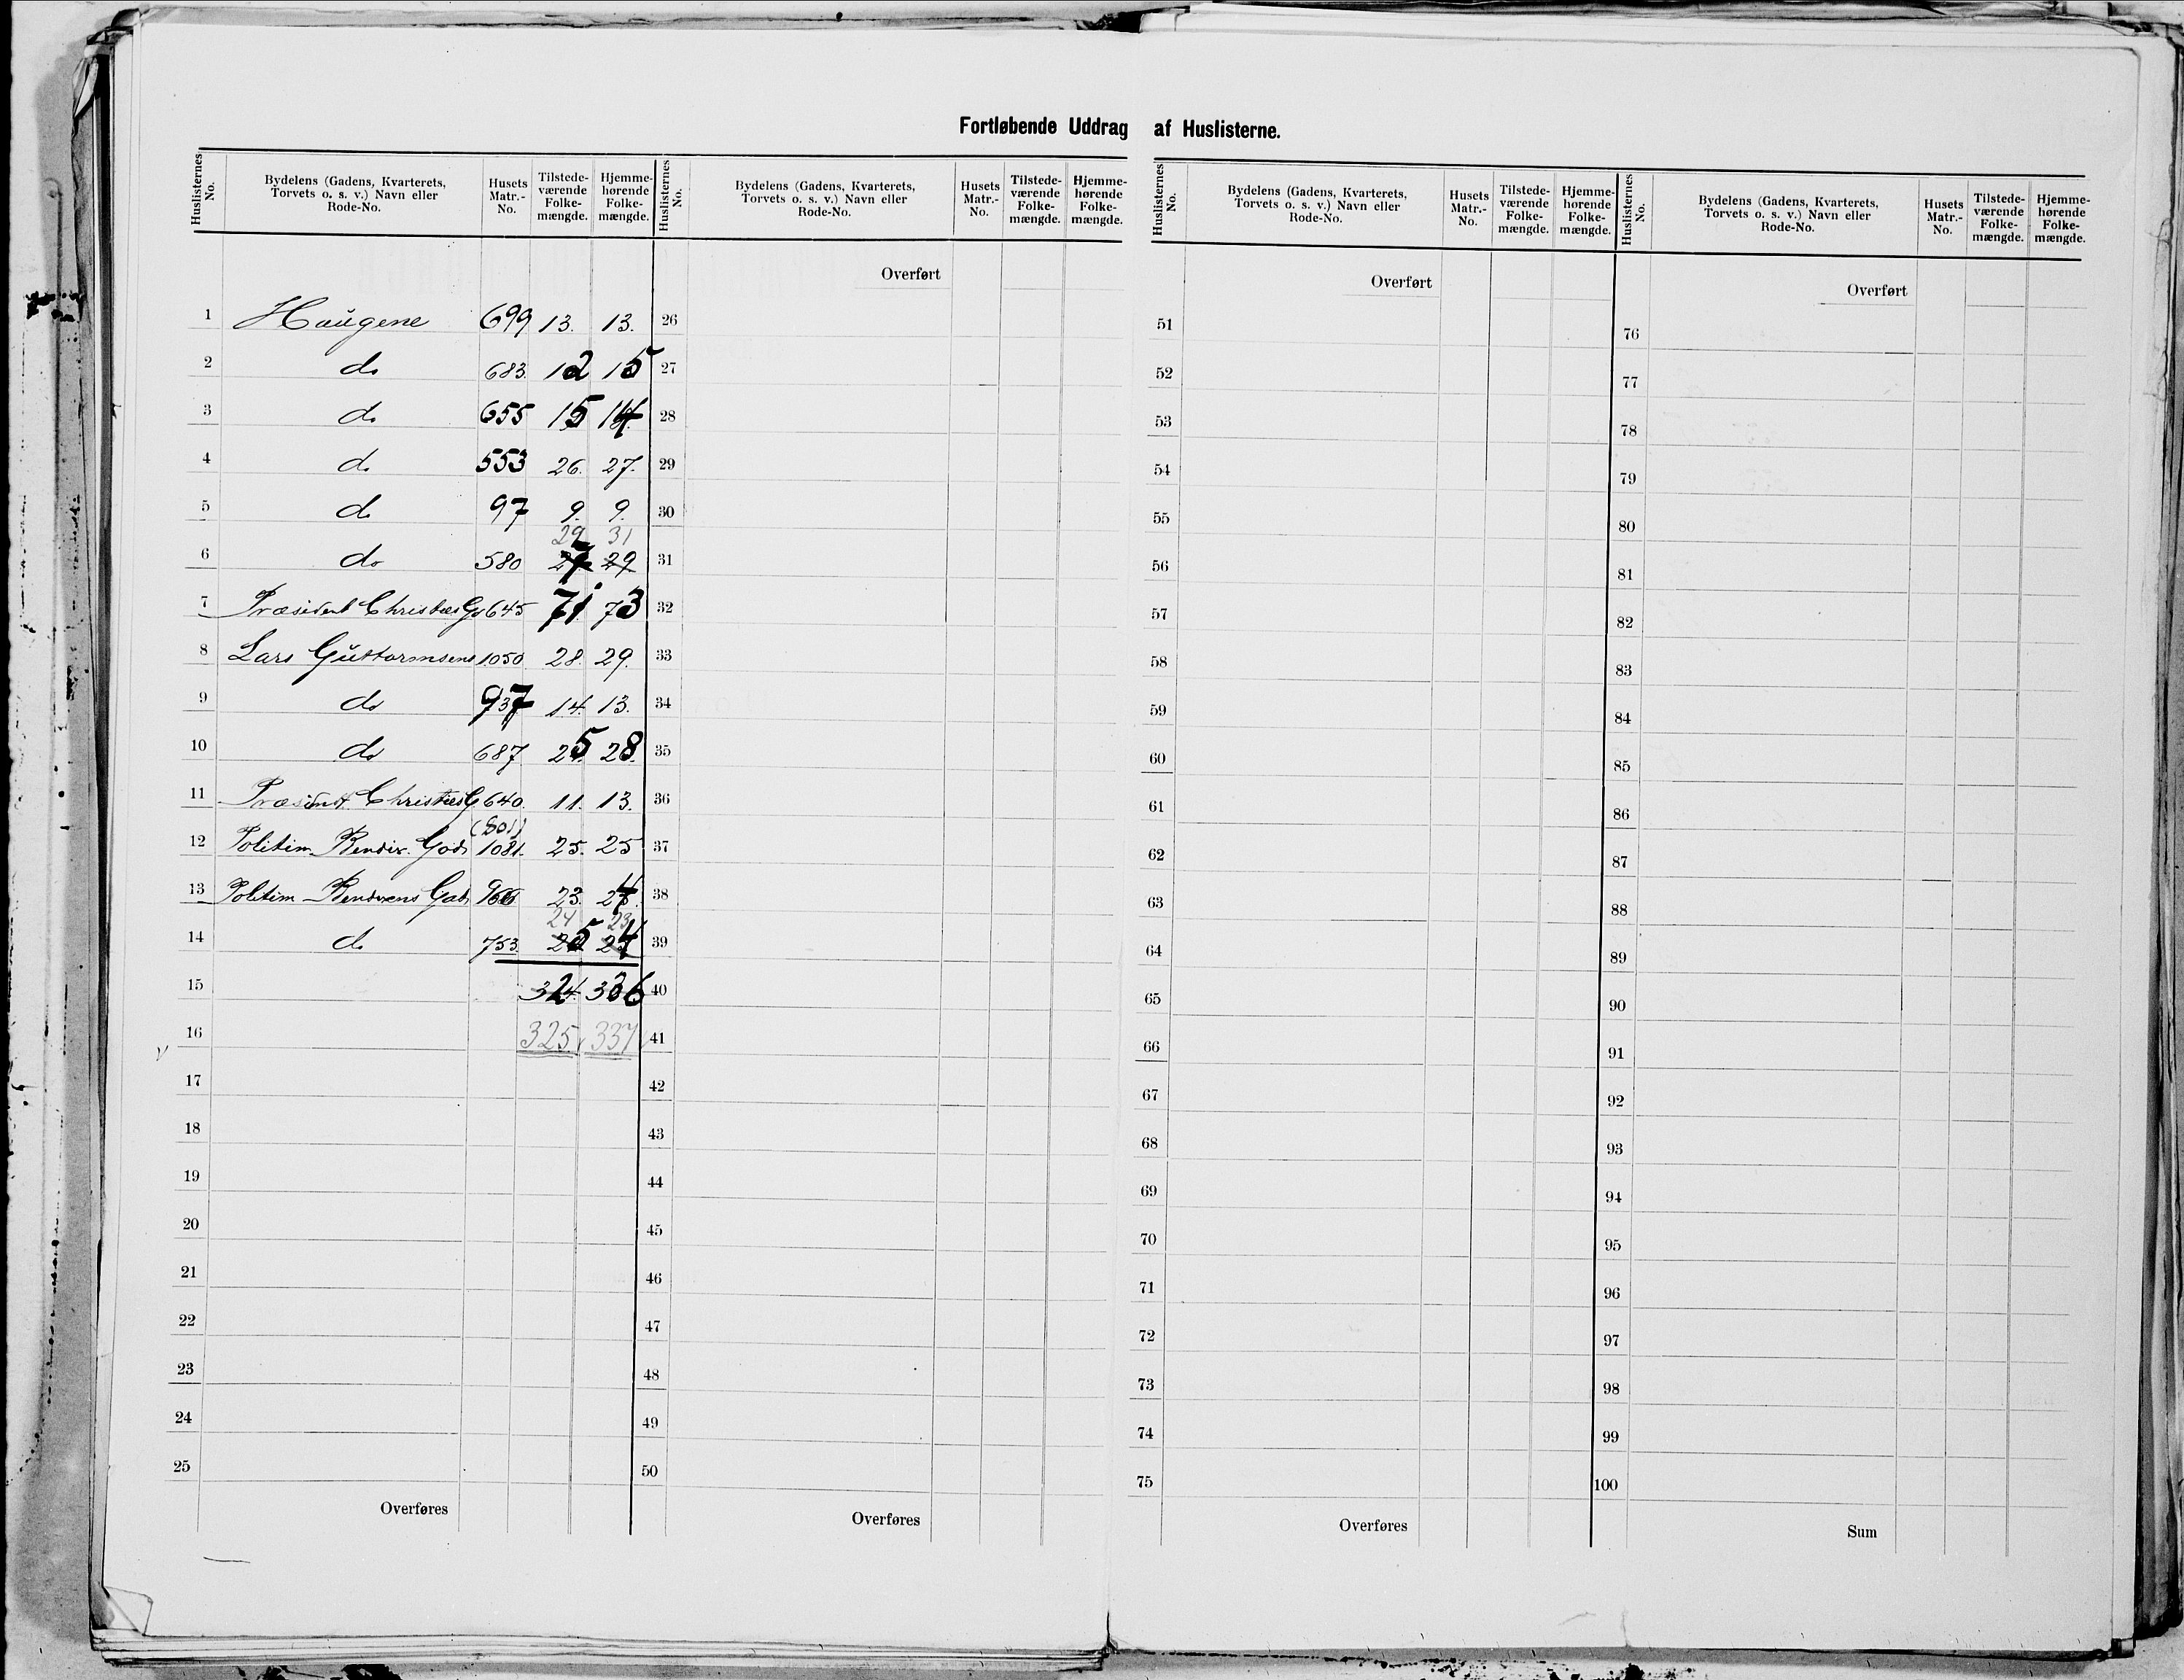 Fortløbende Uddrag af Huslisterne.
Huslisternes No. | Bydelens (Gadens, Kvarterets, Torvets o. s. v.) Navn eller Rode-No. | Husets Matr.-No. | Tilstede-værende Folke-mængde. | Hjemme-hørende Folke-mængde.
1 Haugene 699 13. 13.
2 do 683. 12 15
3 do 655 15 14
4 do 553 26. 27.
5 do 97 9. 9.
29 31
6 do 580 27 29
7 Præsident Christies G 645 71 73
8 Lars Guttormsens 1050 28. 29.
9 do 937 14. 13.
10 do 687 25 28.
11 Præsident Christies G 640. 11. 13.
(801)
12 Politim. Bendix. Gade 1081. 25. 25
13 Politim Bendixens Gade 966 23. 24
24 23
14 do 753. 25 24
15 324. 336
16 325 337
17
18
19
20
21
22
23
24
25
Overføres
Huslisternes No. | Bydelens (Gadens, Kvarterets, Torvets o. s. v.) Navn eller Rode-No. | Husets Matr.-No. | Tilstede-værende Folke-mængde. | Hjemme-hørende Folke-mængde.
Overført
26
27
28
29
30
31
32
33
34
35
36
37
38
39
40
41
42
43
44
45
46
47
48
49
50
Overføres
Huslisternes No. | Bydelens (Gadens, Kvarterets, Torvets o. s. v.) Navn eller Rode-No. | Husets Matr.-No. | Tilstede-værende Folke-mængde. | Hjemme-hørende Folke-mængde.
Overført
51
52
53
54
55
56
57
58
59
60
61
62
63
64
65
66
67
68
69
70
71
72
73
74
75
Overføres
Huslisternes No. | Bydelens (Gadens, Kvarterets, Torvets o. s. v.) Navn eller Rode-No. | Husets Matr.-No. | Tilstede-værende Folke-mængde. | Hjemme-hørende Folke-mængde.
Overført
76
77
78
79
80
81
82
83
84
85
86
87
88
89
90
91
92
93
94
95
96
97
98
99
100
Sum